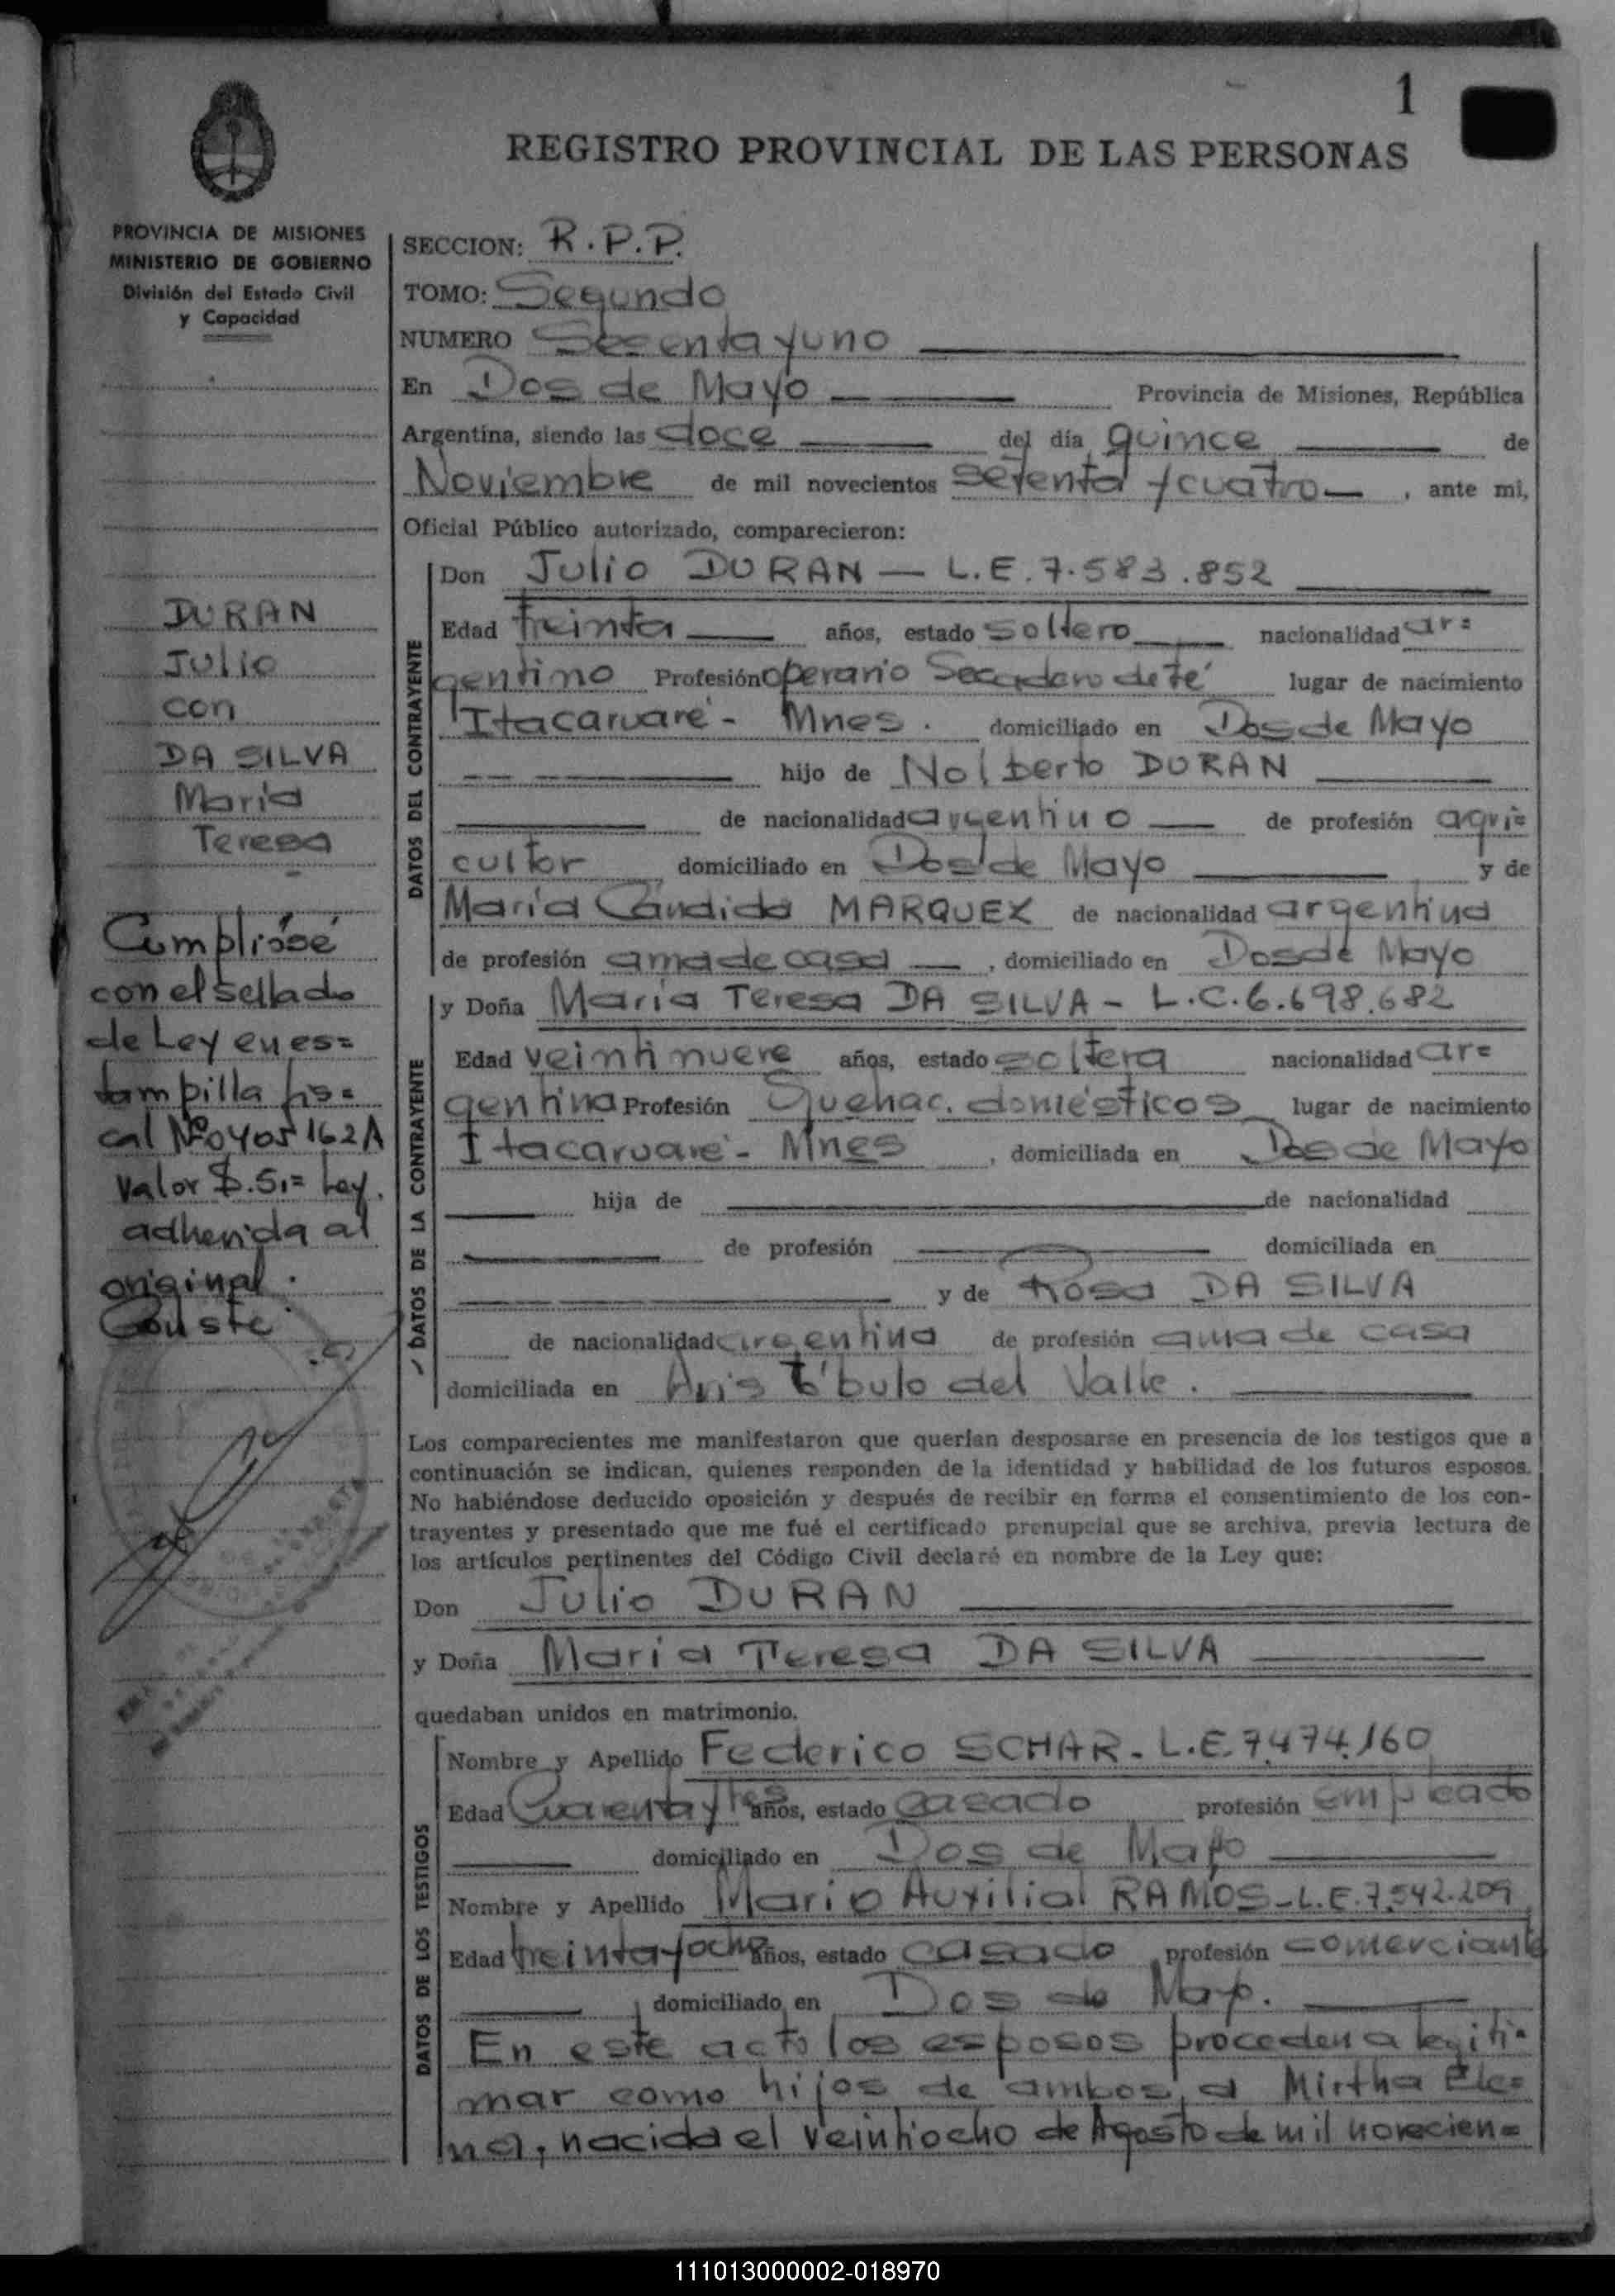 1
REGISTRO PROVINCIAL DE LAS PERSONAS
PROVINCIA DE MISIONES
MINISTERIO DE GOBIERNO
División del Estado Civil
y Capacidad
DURAN
Julio
con
DA SILVA
María
Teresa
Cumplióse
con el sellado
de Ley en es=
tampilla fis=
cal Nº 0405162A
valor $.5,= Ley.
adherida al
original.
Conste
SECCION: R.P.P.
TOMO: Segundo
NUMERO Sesenta y uno
En Dos de Mayo Provincia de Misiones, República
Argentina, siendo las doce del día quince de
Noviembre de mil novecientos setenta y cuatro, ante mi,
Oficial Público autorizado, comparecieron:
DATOS DEL CONTRAYENTE
Don Julio DURAN — L.E. 7.583.852
Edad treinta años, estado soltero nacionalidad ar=
gentino Profesión operario Secadero de té lugar de nacimiento
Itacaruaré - Mnes. domiciliado en Dos de Mayo
hijo de Nolberto DURAN
de nacionalidad argentino de profesión agri=
cultor domiciliado en Dos de Mayo y de
María Cándida MARQUEZ de nacionalidad argentina
de profesión ama de casa, domiciliado en Dos de Mayo
DATOS DE LA CONTRAYENTE
y Doña María Teresa DA SILVA - L.C. 6.698.682
Edad veintinueve años, estado soltera nacionalidad ar=
gentina Profesión Quehac. domésticos lugar de nacimiento
Itacaruaré - Mnes, domiciliada en Dos de Mayo
hija de de nacionalidad
de profesión domiciliada en
y de Rosa DA SILVA
de nacionalidad argentina de profesión ama de casa
domiciliada en Aristóbulo del Valle.
Los comparecientes me manifestaron que querían desposarse en presencia de los testigos que a
continuación se indican, quienes responden de la identidad y habilidad de los futuros esposos.
No habiéndose deducido oposición y después de recibir en forma el consentimiento de los con-
trayentes y presentado que me fué el certificado prenupcial que se archiva, previa lectura de
los artículos pertinentes del Código Civil declaré en nombre de la Ley que:
Don Julio DURAN
y Doña María Teresa DA SILVA
quedaban unidos en matrimonio.
DATOS DE LOS TESTIGOS
Nombre y Apellido Federico SCHAR - L.E. 7.474.160
Edad Cuarenta y tres años, estado casado profesión empleado
domiciliado en Dos de Mayo
Nombre y Apellido Mario Auxilial RAMOS - L.E. 7.542.209
Edad treinta y ocho años, estado casado, profesión comerciante
domiciliado en Dos de Mayo.
En este acto los esposos proceden a legiti=
mar como hijos de ambos, a Mirtha Ele=
na, nacida el veintiocho de Agosto de mil novecien=
111013000002-018970